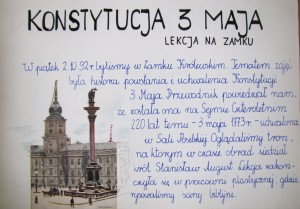 KONSTYTUCJA 3 MAJA
LEKCJA NA ZAMKU
W piątek 2.10.92r byliśmy w Zamku Królewskim. Tematem zajęć
była historia powstania i uchwalenia Konstytucji
3 Maja. Przewodnik powiedział nam,
że została ona na Sejmie Czteroletnim
220 lat temu - 3 maja 1773r. - uchwalona
w Sali Poselskiej. Oglądaliśmy tron,
na którym w czasie obrad siedział
król Stanisław August. Lekcja zakoń-
czyła się w pracowni plastycznej, gdzie
rysowaliśmy sceny